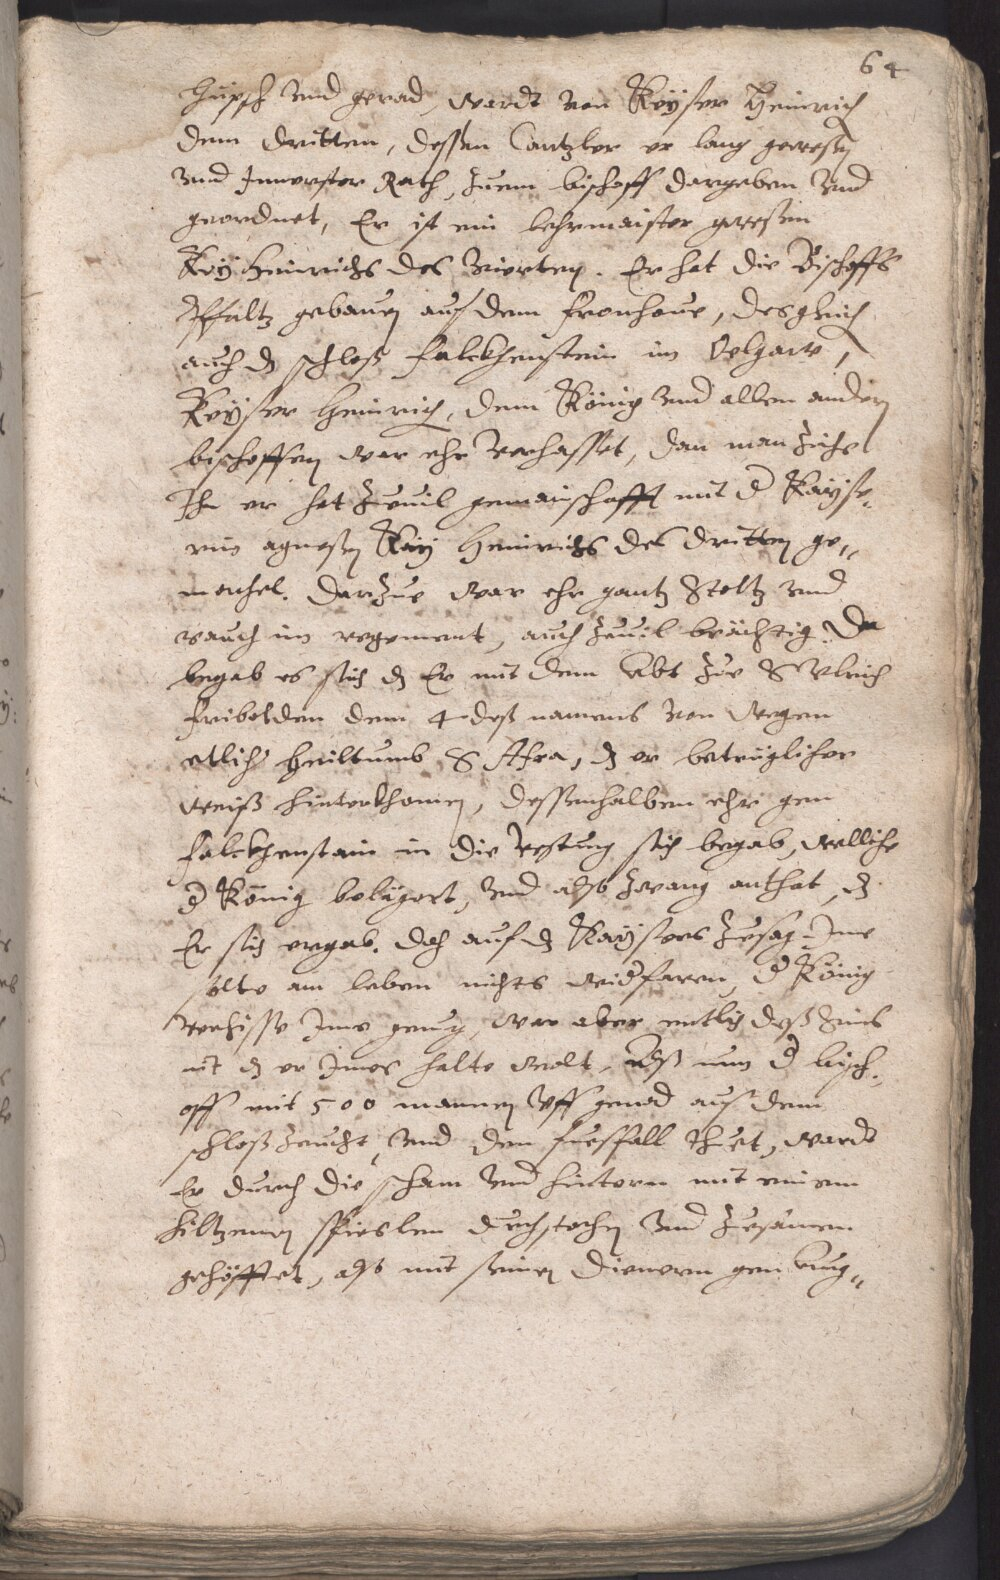 64
hüpsch vnd gerad, wardt von Keyser Heinrich
dem dritten, dessen Cantzler er lang gewesen
vnd Innerster Rath, zuem bischoff dargeben vnd
geordnet, Er ist ein lehrmaister gewesen
Key Heinrichs des vierten. Er hat die Bischoffs
Pfaltz gebauen auf dem fronhoue, desgleich
auch dz schloß falckhenstein im Velgaw,
Keyser Heinrich, dem König vnd allen andern
bischoffen war ehr verhasset, dan man zihe
Ihn er het zuuil gemainschafft mit d Kayse,
rin agnesen Kay Heinrichs des dritten ge,,
mechel. Darzue war ehr gantz Stoltz vnd
rauch im regement, auch zeuil brächtig. Da
begab es sich dz Er mit dem Abt zue S Vlrich
fribolden dem 4 deß namens von wegen
etlich heiltumb S Afra, dz er betrüglicher
weiß hinterkhomen, dessenhalben ehr gen
falckhenstain in die vestung sich begab, welliche
d König belägert, vnd also zwang anthat, dz
Er sich ergab. doch auf dz Kaysers zusag Ime
solte am leben nichts widfaren, d König
verhisse Ime genug, war aber entlich deß sins
nit dz er Imes halte wolt, Alß nun d bisch,
off mit 500 mannen vff genad auß dem
schloß zeucht, vnd den fuesfall thuet, wardt
Er durch die scham vnd hintern mit einem
hiltzenen spieslen durchstochen vnd zusamen
gehöfftet, also mit seinen dienern gen Aug,,